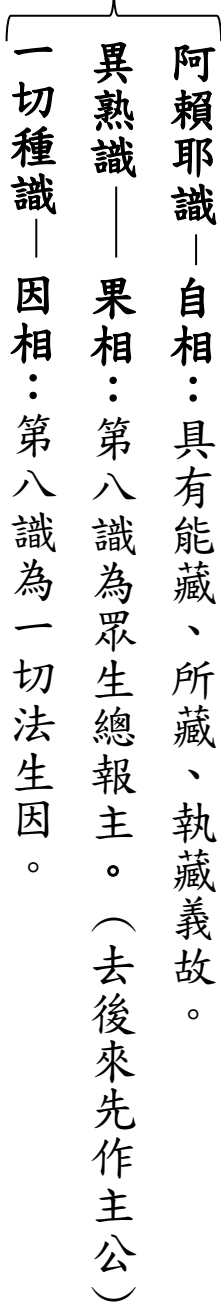 阿賴耶識—自相：具有能藏、所藏、執藏義故。
異熟識——果相：第八識為眾生總報主。（去後來先作主公）
一切種識—因相：第八識為一切法生因。